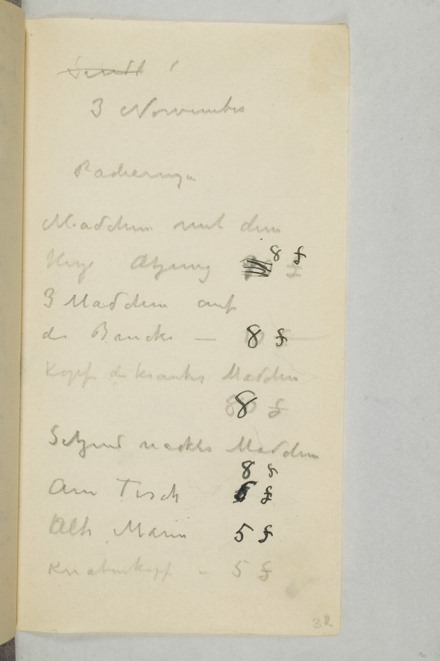 3 November
Radierungen
Mädchen mit dem
Atzung 8 £
3 Mädchen auf
der Brücke — 8 £
Kopf des kranken Mädchen
8 £
Sitzend nacktes Mädchen
8 £
Am Tisch £
Alte Mann 5 £
Knabenkopf – 5 £
32